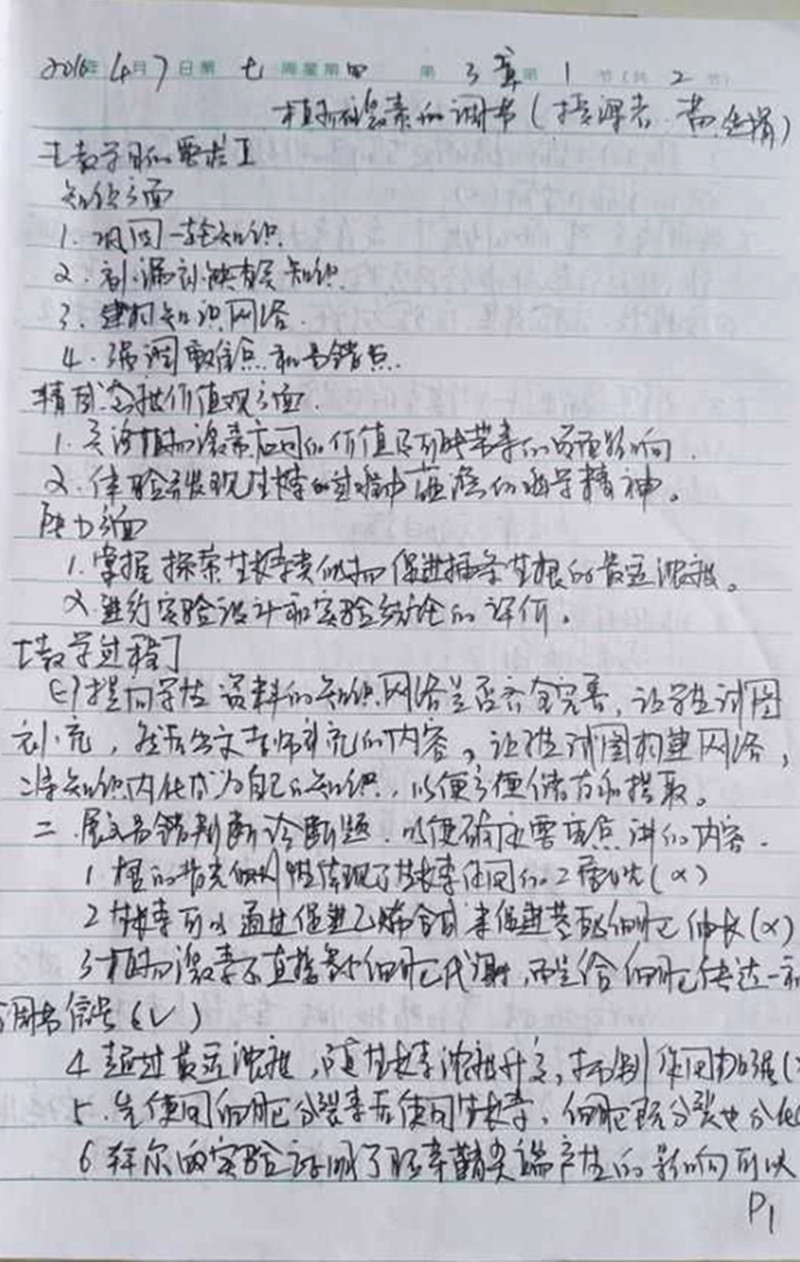 2016年4月7日第七周星期四 第3章第1节(共2节)
植物激素的调节(授课者:黄
[教学目的要求]
知识方面
1.巩固一轮知识.
2.补漏补缺知识.
3.建构知识网络.
4.强调重难点和易错点.
情感态度价值观方面.
1.关注植物激素应用的价值及可能带来的负面影响.
2.体验发现生长素的过程中蕴涵的科学精神。
能力方面
1.掌握探索生长素类似物促进插条生根的最适浓度。
2.进行实验设计和实验结论的评价。
[教学过程]
(一)提问学生资料的知识网络是否齐全完善,让学生试图
补充,然后公文老师补充的内容。让学生试图构建网络,
将知识内化成为自己的知识,以便方便储存和提取。
二.展示易错判断诊断题.以便确定要重点讲的内容.
1根的背光性体现了生长素作用的二重性(×)
2生长素可以通过促进乙烯合成来促进茎段细胞伸长(×)
3植物激素不直接参与细胞代谢,而是给细胞传达一
调节信号(√)
4超过最适浓度,随生长素浓度升高,抑制作用增强(
5.先使用细胞分裂素后使用生长素,细胞既分裂也分化
6拜尔的实验证明了胚芽鞘尖端产生的影响可以
P1